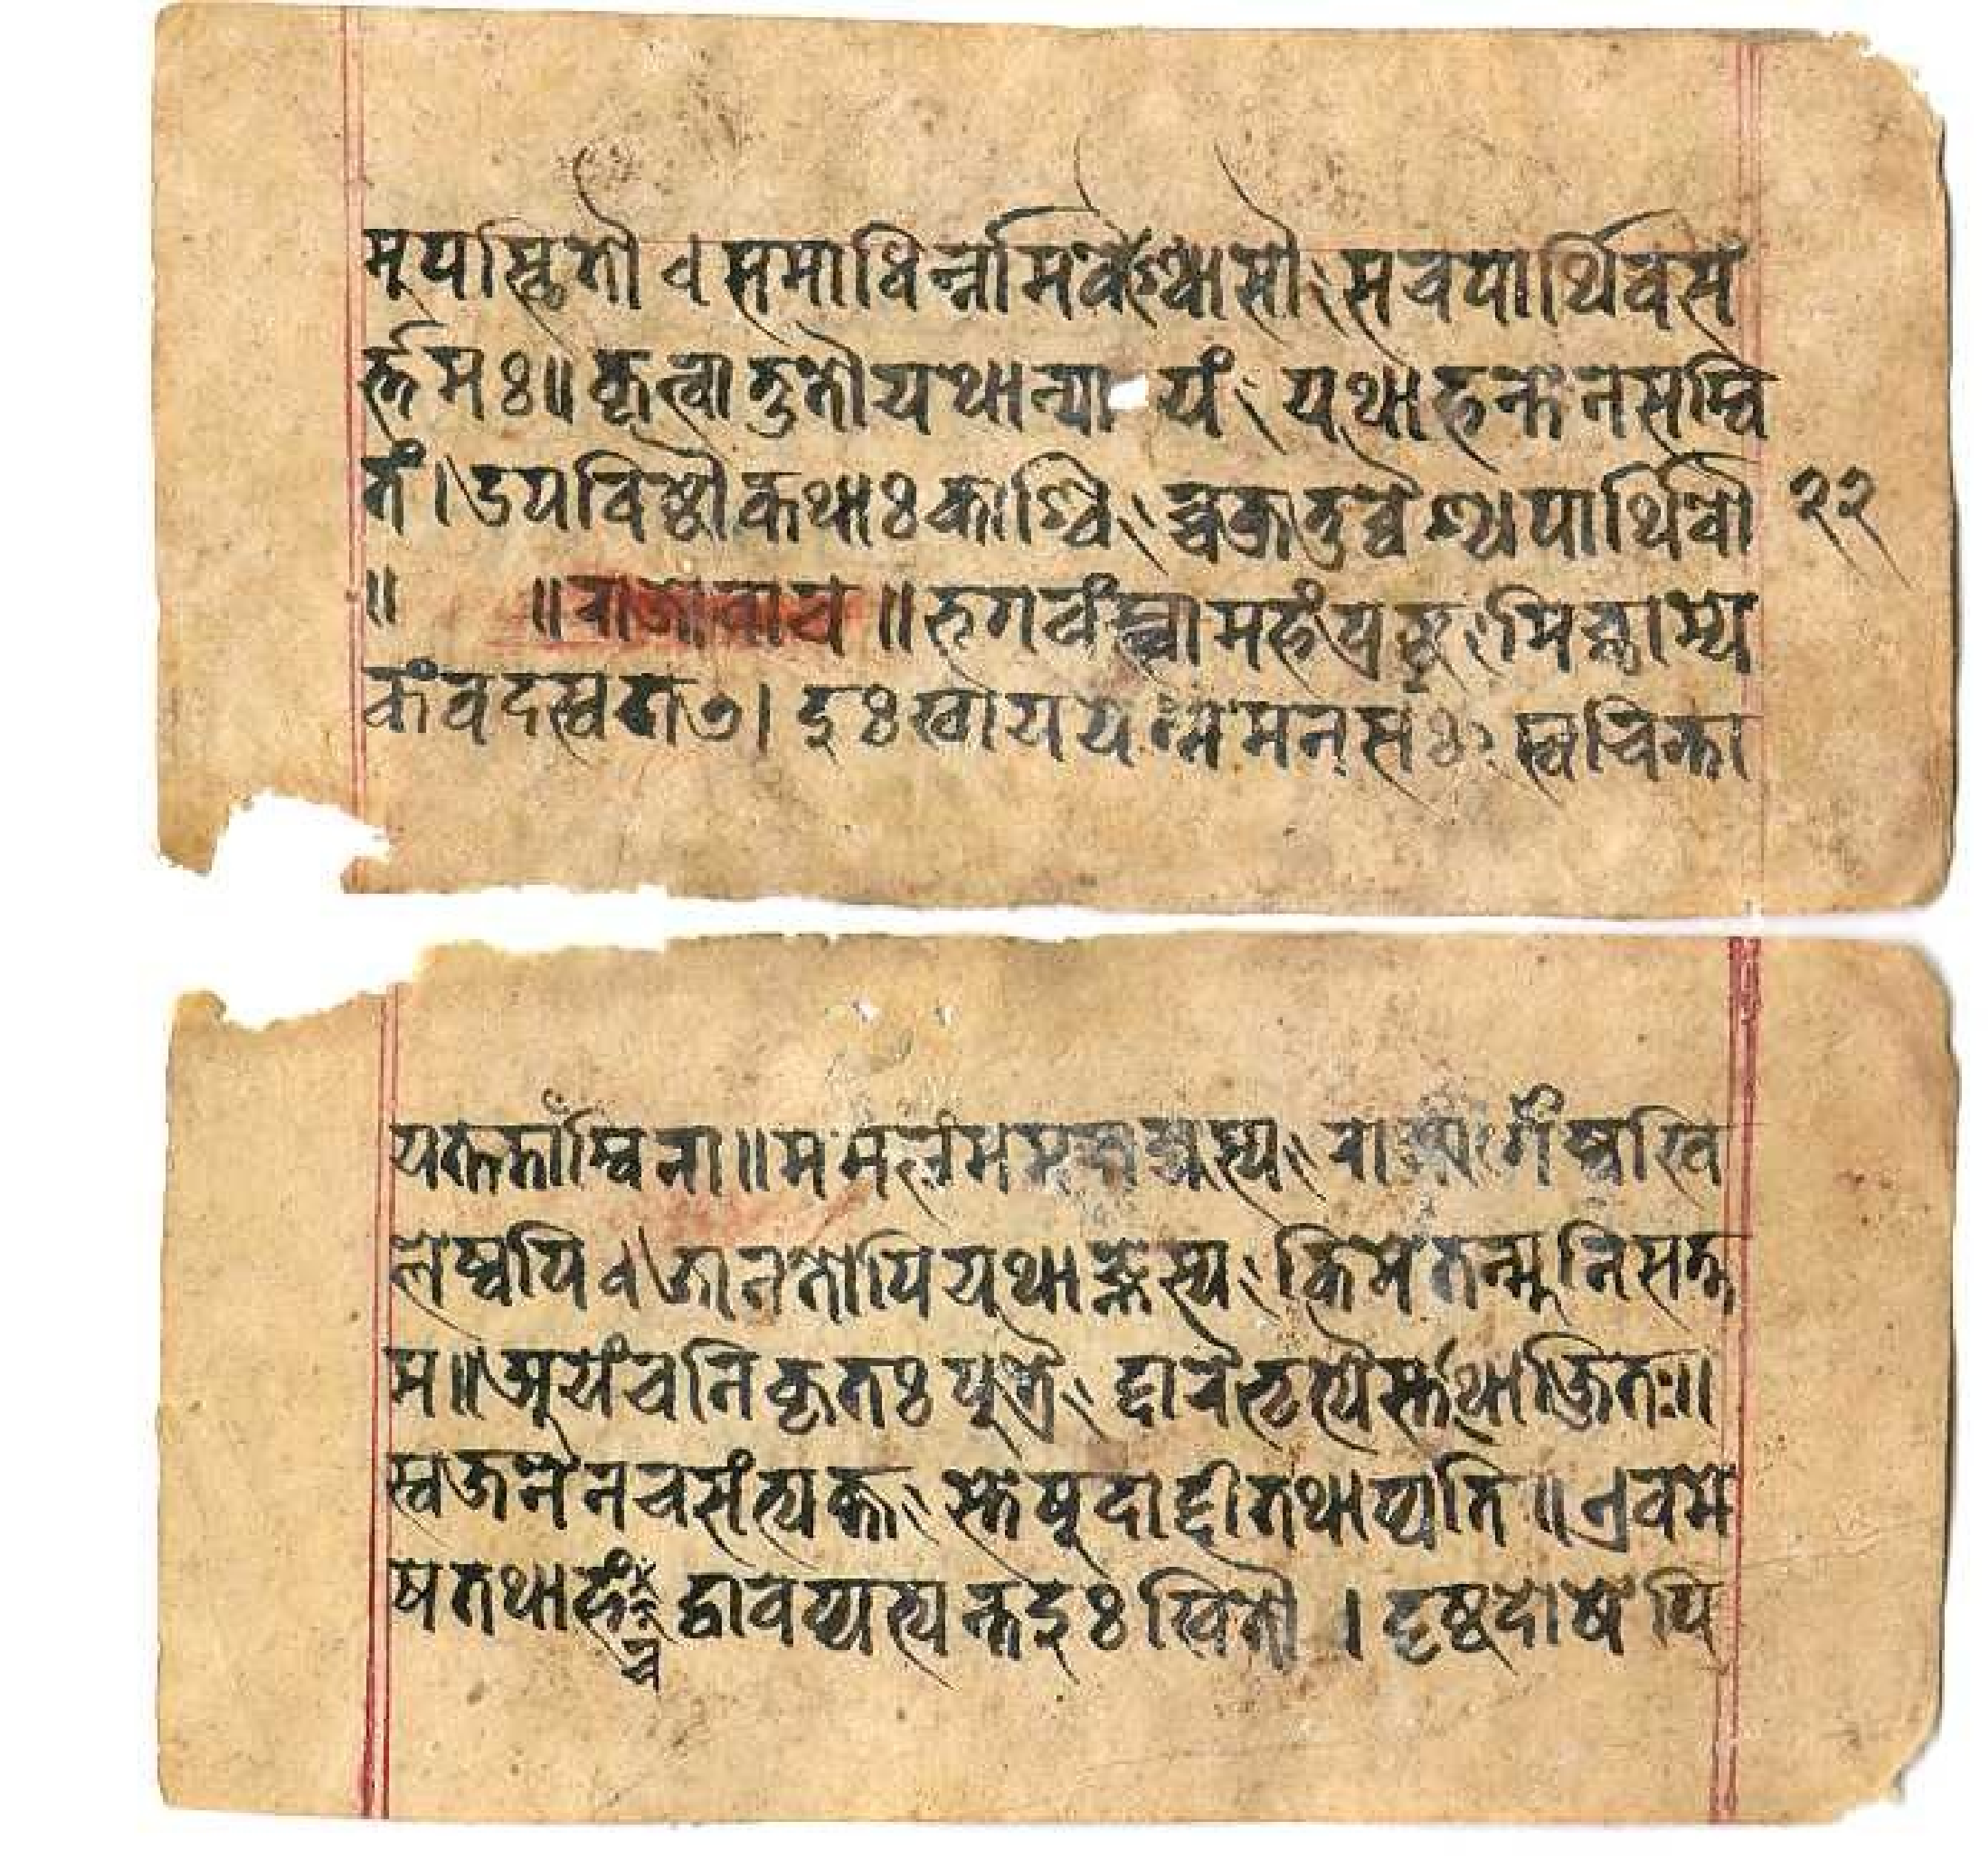 मुपस्थितौ । समाधिर्न्नाम वैश्योसौ स च पार्थिवस
र्त्तमः ॥ कृत्वा तु तौ यथान्यायं यथार्हन्तेन सम्वि
तं । उपविष्ठौ कथाः काश्चि च्चक्रतुर्व्वैश्यपार्थिवौ २२
॥ ॥ राजोवाच ॥ भगवंस्त्वामहं प्रष्टु मिच्छाम्ये
कं वदस्व तत् । दुःखाय यन्मे मनसः स्वचित्ता
यत्ततांम्विना ॥ ममत्वं मम राज्यस्य राज्यांगेष्वखि
लेष्वपि । जानतोपि यथाज्ञस्य किमेतन्मुनिसत्त
म ॥ अयं च निकृतः पुत्रै र्द्दारैर्भृत्यैर्स्तथोज्झितः ॥
स्वजनेन च संत्यक्त स्तेषु हार्द्दी तथाप्यति ॥ एवमे
ष तथाहं च द्वावप्यत्यन्तदुःखितौ । दृष्टदोषेपि